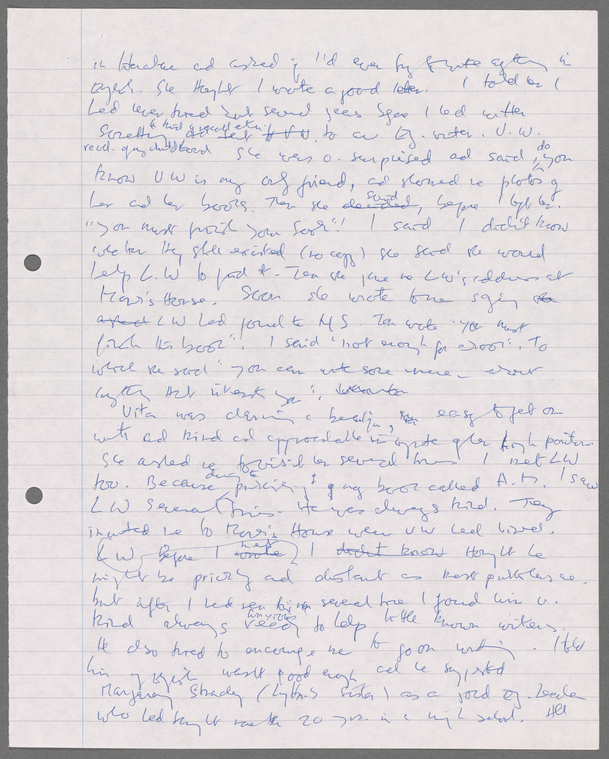 in literature and asked if I'd ever try to write anything in
English. She thought I wrote a good letter. I told her I
had never tried but several years ago I had written
something to an Eng. writer. V. W.
read. of my childhood She was v. surprised and said, do you
know V W is my only friend, and showed me photos of
her and her books. Then she said, before I left her.
"you must finish your book"! I said I didn't know
whether they still existed (no copy) she said she would
help L.W to find it. Then she gave me LW's address at
Monk's House. Soon she wrote to me saying
LW had found the M S. You must
finish this book"! I said "not enough for a book". To
which she said "you can write some more about
anything that interests you",
Vita was charming & beautiful, easy to get on
with and kind and approachable in spite of her high position
She asked me to visit her several times I met LW
too. Because during printing of my book called A.M. I saw
L W several times. He was always kind. They
invited me to Monk's House where VW had lived.
L W. Before I I thought he
might be priggy and distant as most publishers are.
but after I had seen him several times I found him v.
kind always anxious to help little known writers.
He also tried to encourage me to go on writing. I told
him my English wasn't good enough and he suggested
Strachey (Lytton's sister) as a good Eng. teacher
who had taught maths 20 years in a high school.